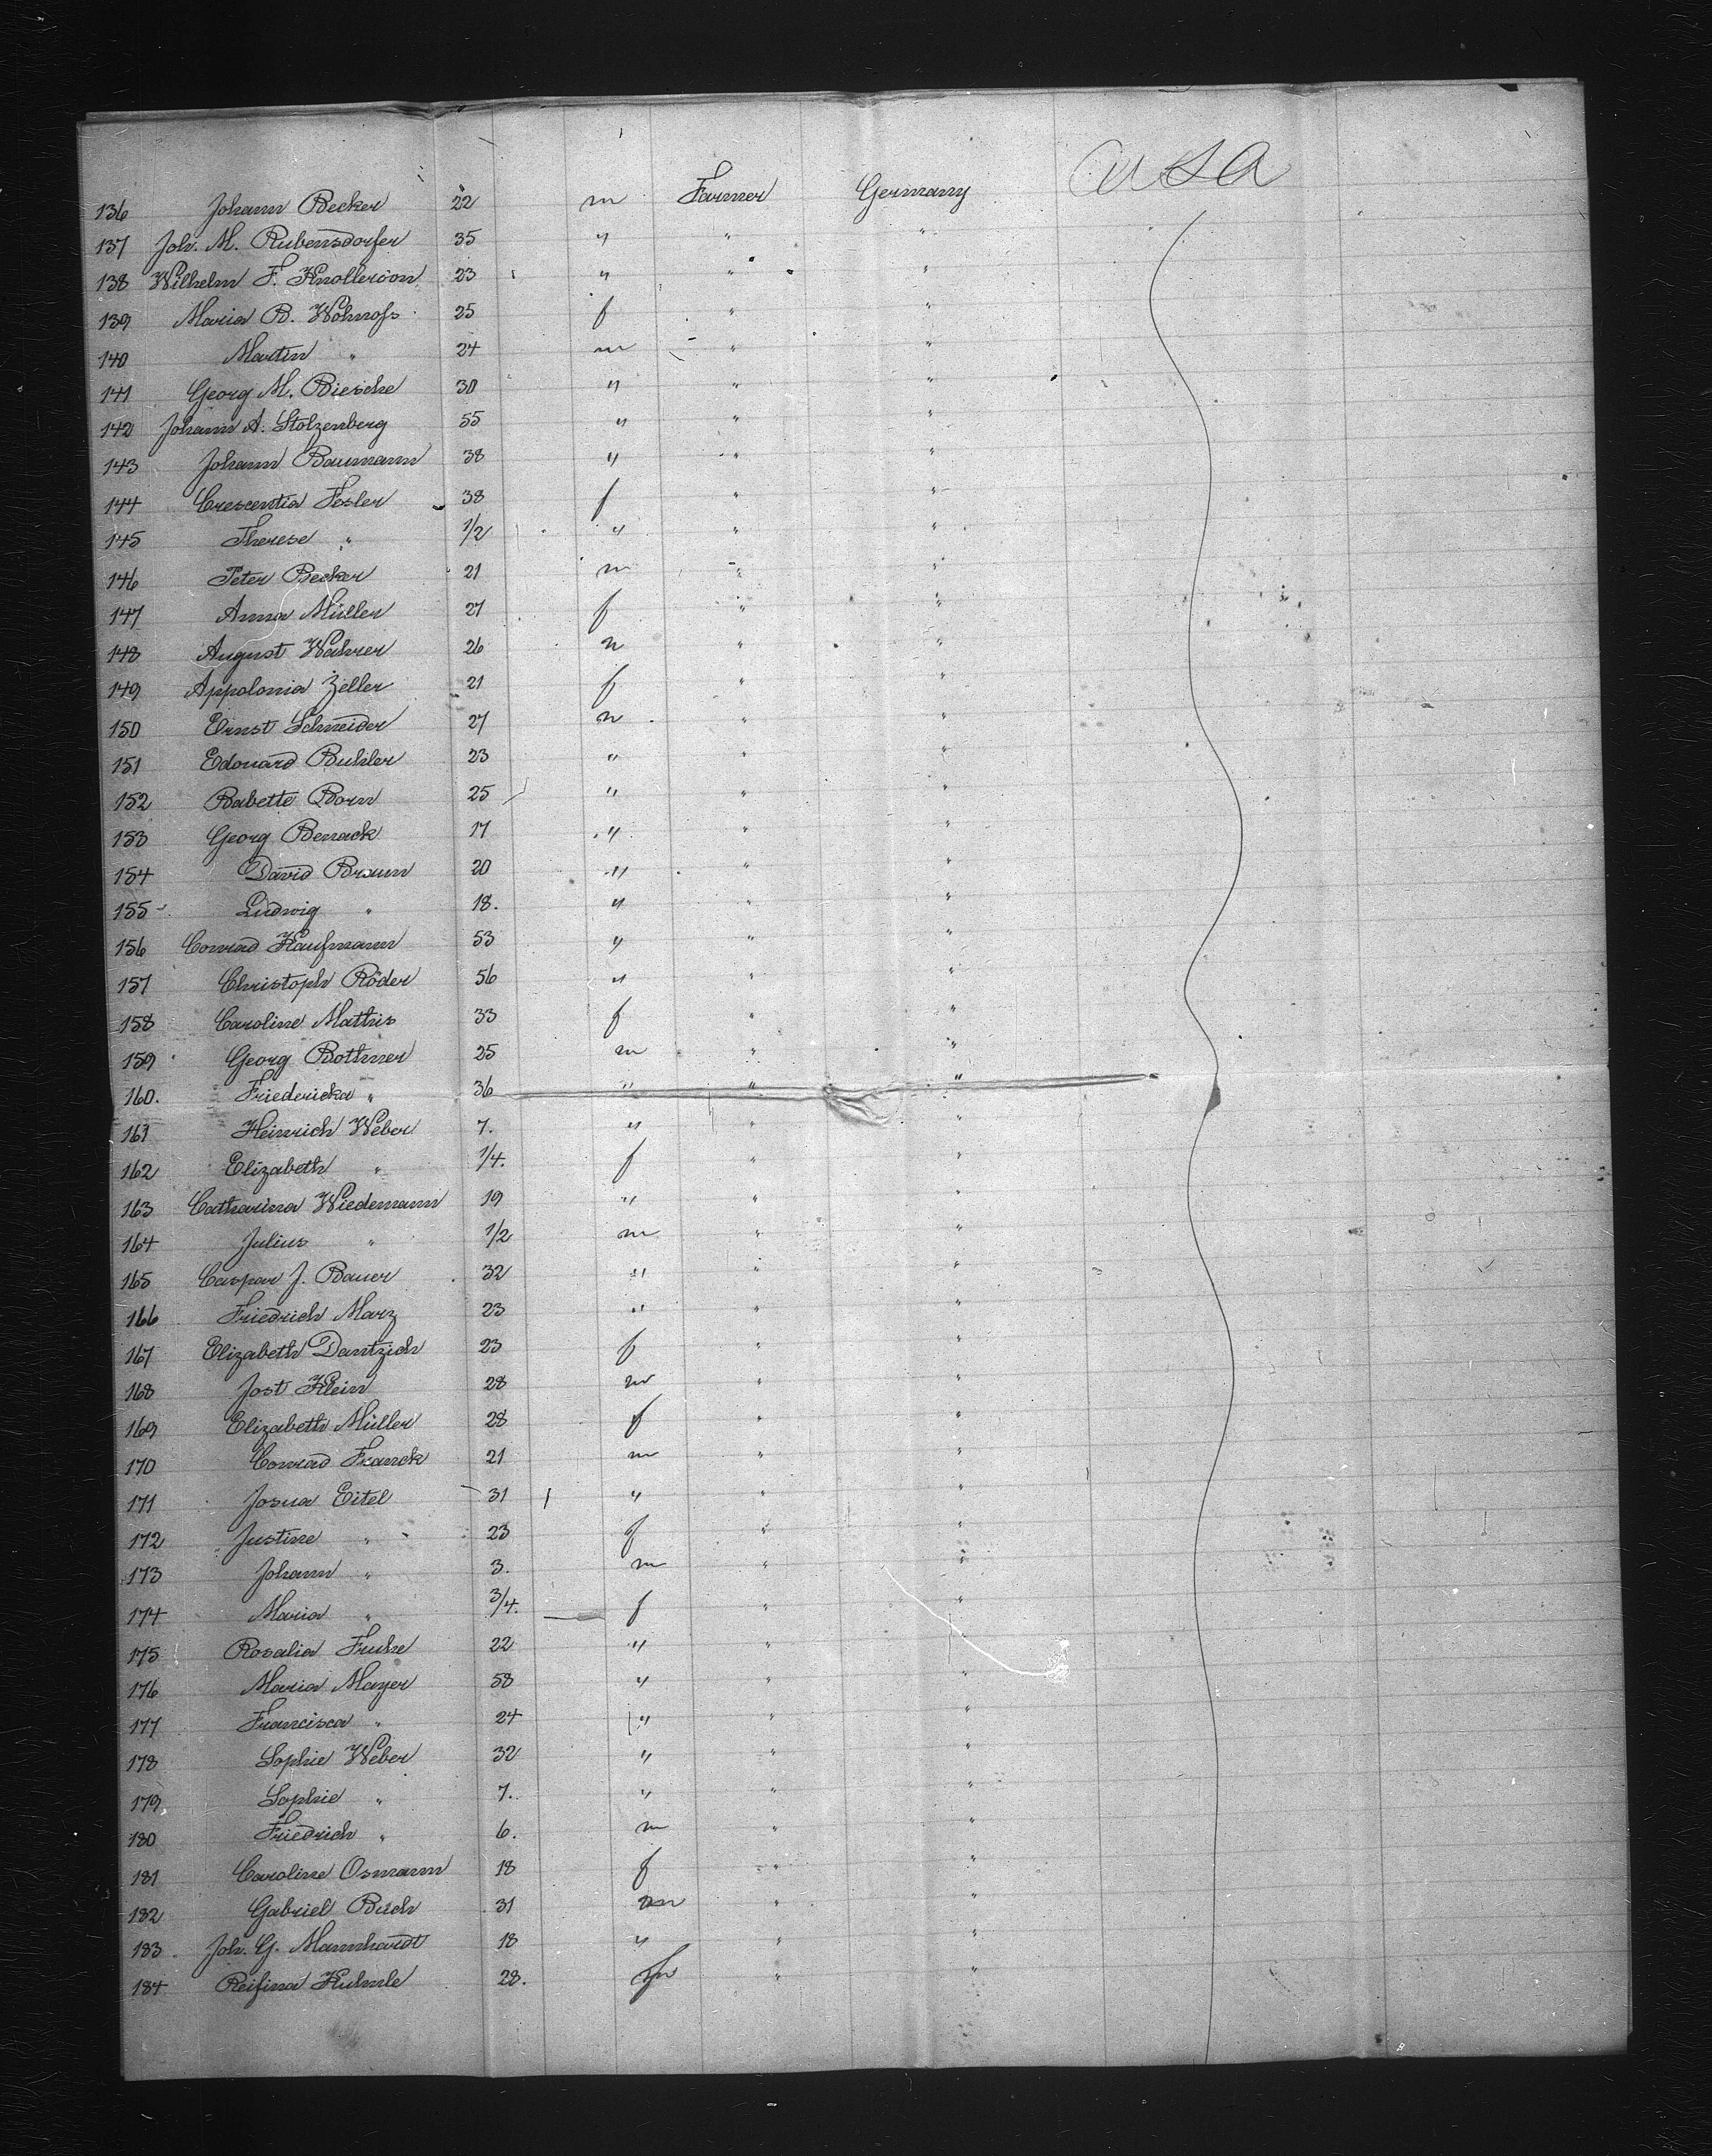 U S A
136 Johann Becker 22 m Farmer Germany
137 Joh. M. Rubensdorfer 35 " " "
138 Wilhelm F. Knollerson 23 " " "
139 Maria B. 25 f " "
140 Martin " 24 m " "
141 Georg M. Biesche 30 " " "
142 Johann A. Stolzenberg 55 " " "
143 Johann Baumann 38 " " "
144 Crescentia Fesler 38 f " "
145 Therese " 1/2 " " "
146 Peter Becker 21 m " "
147 Anna Müller 27 f " "
148 August Wahrer 26 m " "
149 Appolonia Zeller 21 f " "
150 Ernst Schneider 27 m " "
151 Edouard Buhler 23 " " "
152 Babette Born 25 " " "
153 Georg Benack 17 " " "
154 David Braun 20 " " "
155 Ludwig " 18. " " "
156 Conrad Kaufmann 53 " " "
157 Christoph Röder 56 " " "
158 Caroline Mathis 33 f " "
159 Georg Bothner 25 m " "
160. Friedericka " 36 " " "
161 Heinrich Weber 7. " " "
162 Elizabeth " 1/4. f " "
163 Catharina Wiedemann 19 " " "
164 Julius " 1/2 m " "
165 Caspar J. Bauer 32 " " "
166 Friedrich Marz 23 " " "
167 Elizabeth Dantzich 23 f " "
168 Jost Klein 28 m " "
169 Elizabeth Müller 28 f " "
170 Conrad Franck 21 m " "
171 Josua Eitel 31 " " "
172 Justine " 23 f " "
173 Johann " 3. m " "
174 Maria " 3/4. f " "
175 Rosalia Fruhe 22 " " "
176 Maria Mayer 58 " " "
177 Francisca " 24 " " "
178 Sophie Weber 32 " " "
179 Sophie " 7. " " "
180 Friedrich " 6. m " "
181 Caroline Osmann 18 f " "
182 Gabriel Buch 31 m " "
183. Joh. G. Mannhardt 18 " " "
184 Reifina Kuhnle 28. f " "